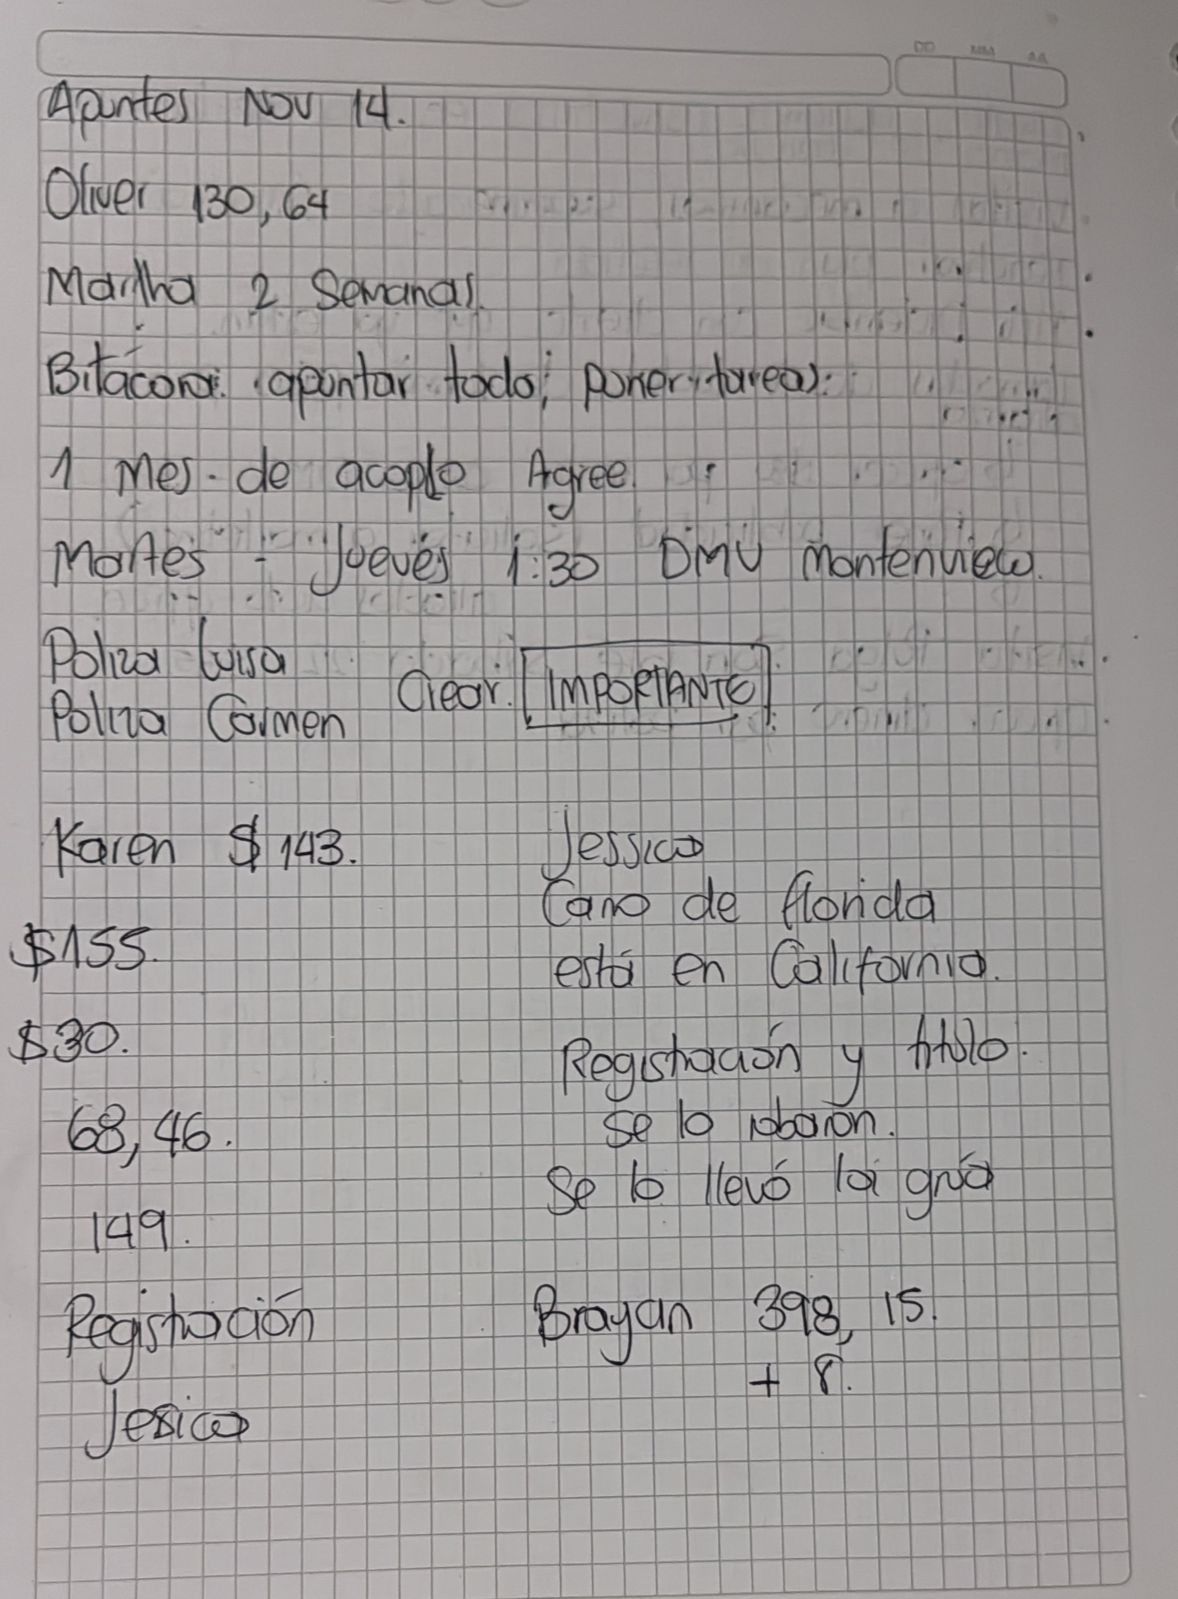 Apuntes Nov 14.
Oliver 130,64
Martha 2 Semanas.
Bitácora: apuntar todo; poner tareas.
1 Mes. de acople Agree.
Martes - Jueves 1:30 DMV Montenview.
Poliza Luisa
Poliza Carmen
Crear. IMPORTANTE
Karen $143.
$155.
$30.
68,46.
149.
Registración
Jesica
Jessica
Carro de florida
está en California.
Registración y título.
se lo robaron.
Se lo llevó la grúa
Brayan 398,15.
+ 8.